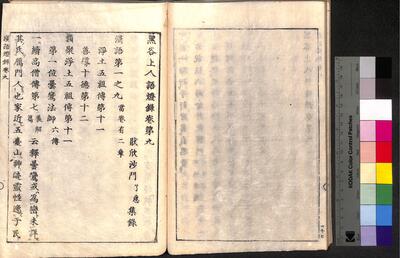 黑谷上人語燈錄卷第九
厭欣沙門了惠集錄
漢語第一之九 當卷有二章
淨土五祖傳第十一
善導十德第十二
類聚淨土五祖傳第十一
第一位曇鸞法師 六傳
一續高僧傳第七 義解篇 云釋曇鸞或爲巒未詳
其氏鴈門人也家近五臺山神迹靈怪逸于民
漢語燈錄卷九
KODAK Color Control Patches